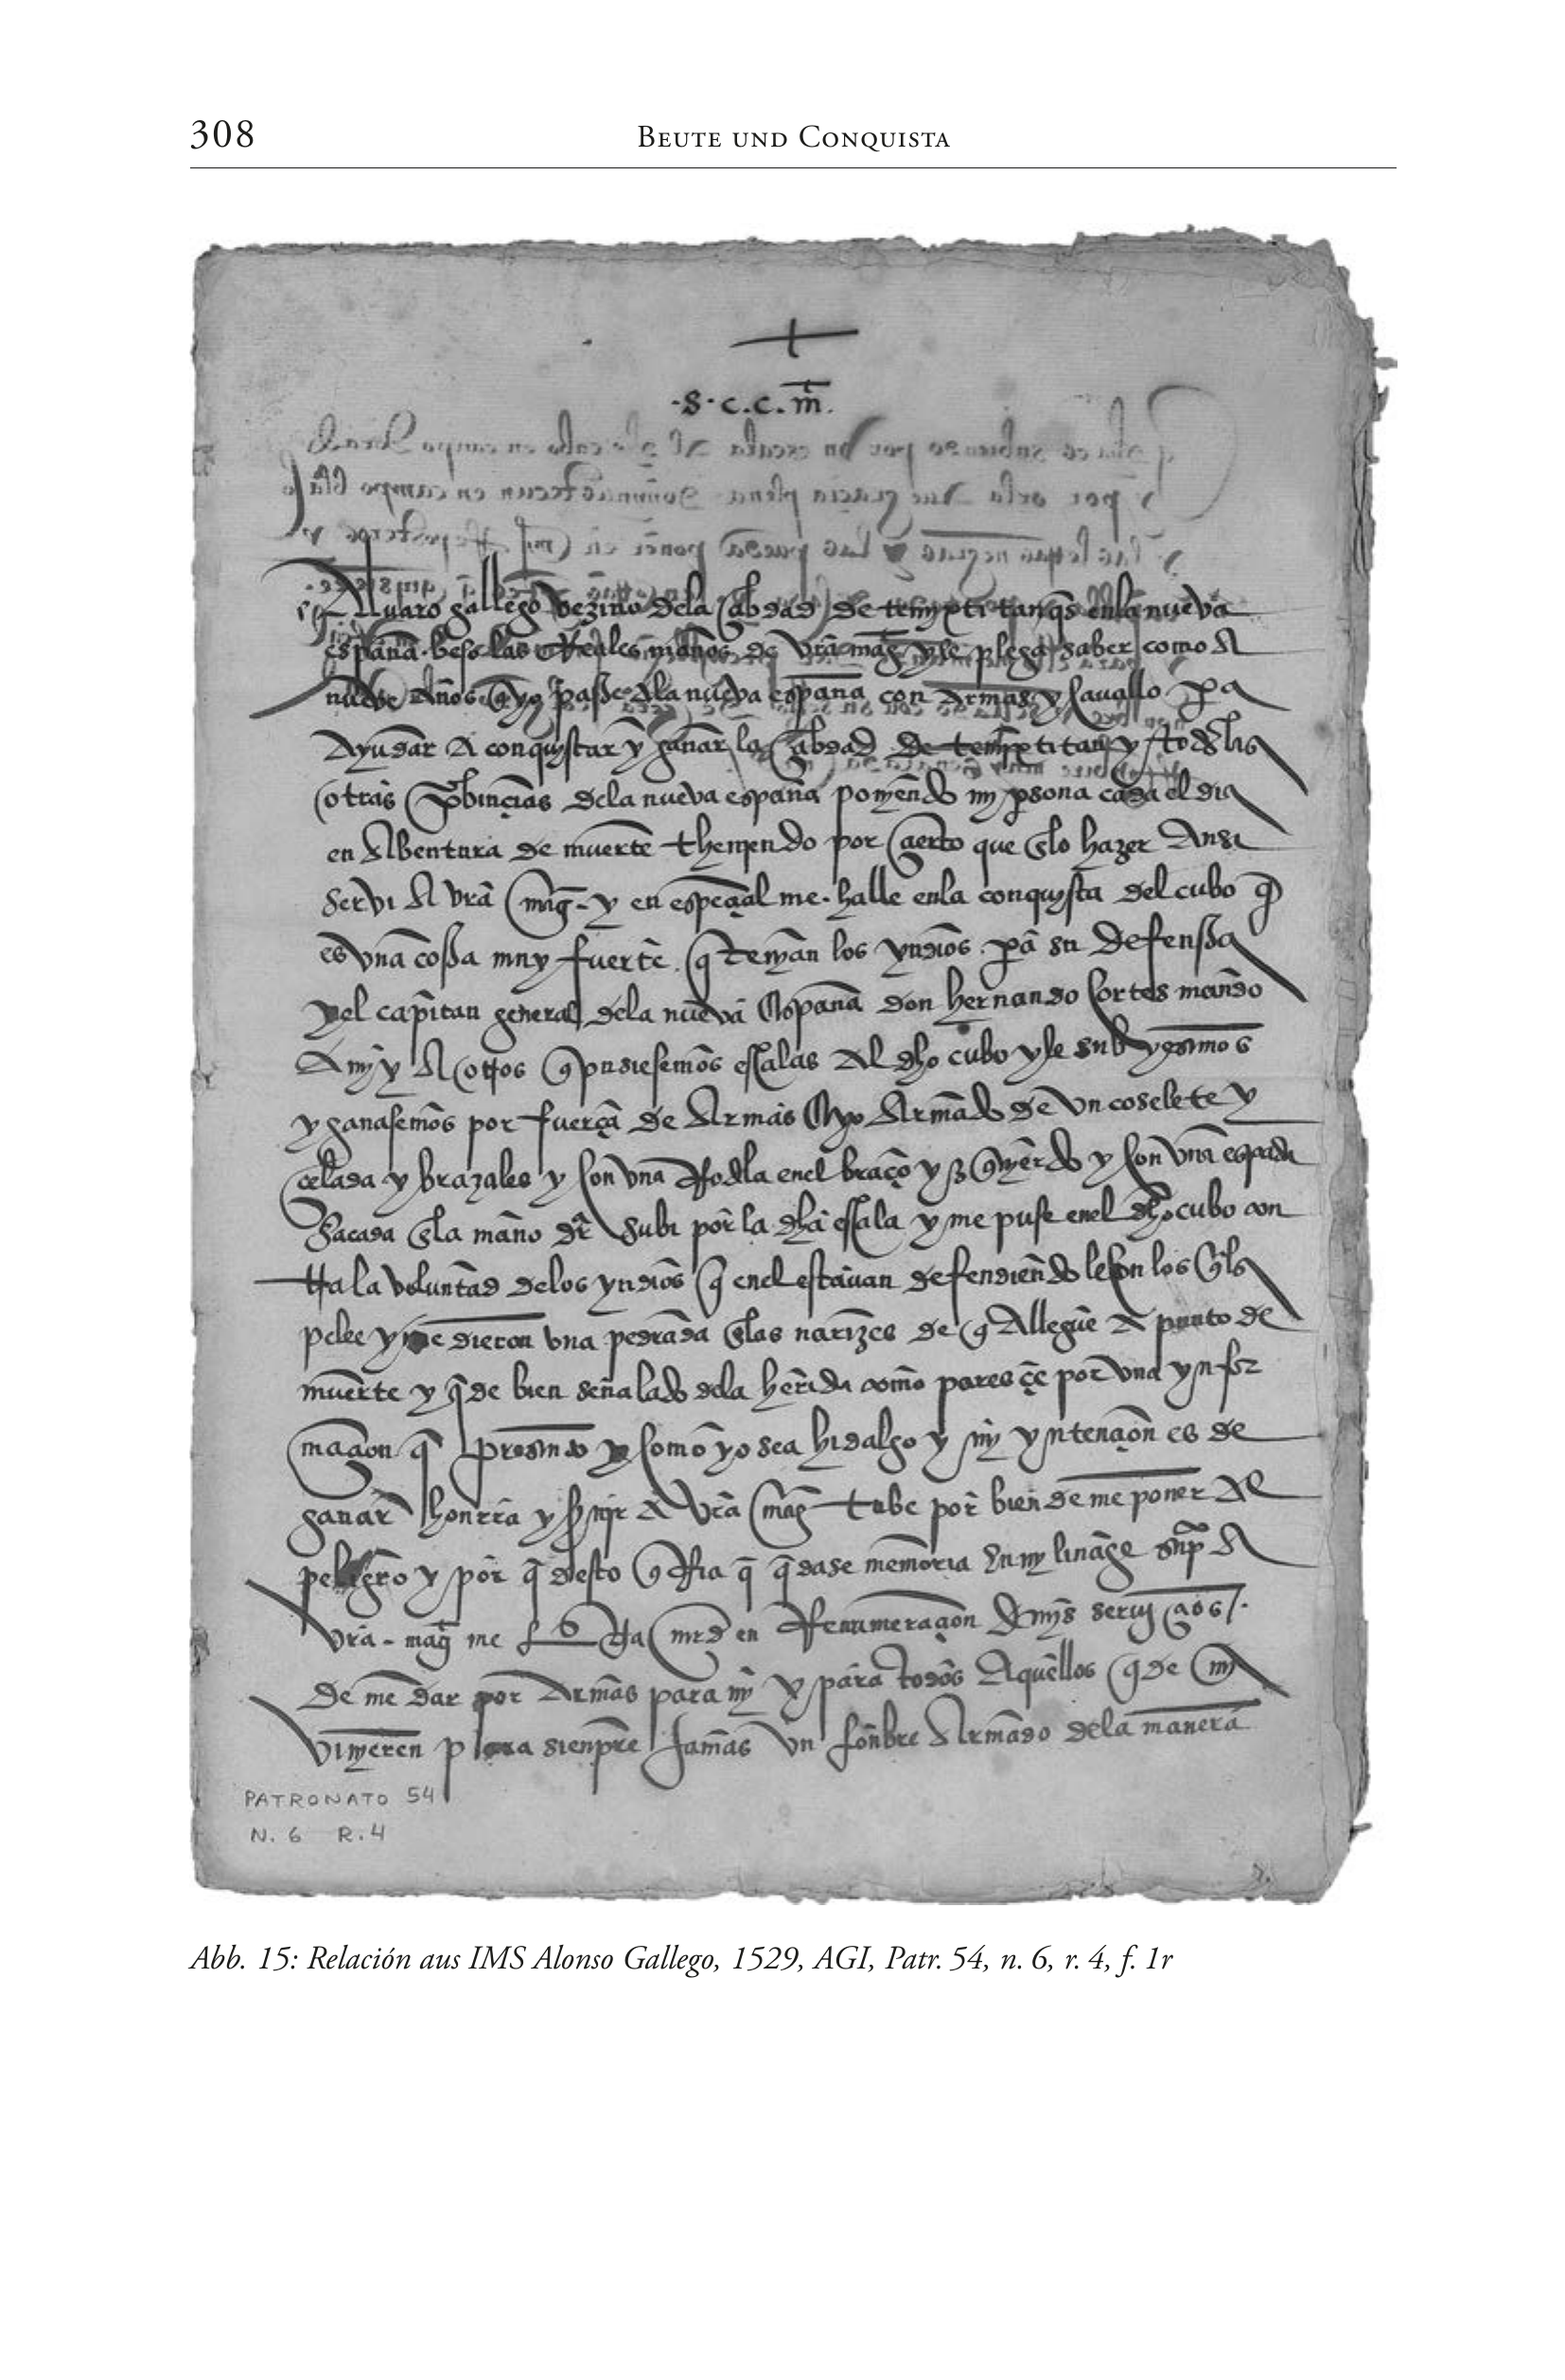 308 BEUTE UND CONQUISTA
·S·c.c.m̄t.
Alvaro gallego vezino dela çibdad de temxtitan qs enla nueva
españa beso las Reales manos de vrã mag yle plega saber como A
nueve Años q yo passe Ala nueva españa con Armas y cauallo pa
Ayudar A conquystar y ganar la çibdad de temxtitan y todas las
otras probinçias dela nueva españa ponyendo my psona cada el dia
en Abentura de muerte thenyendo por çierto que enlo hazer Ansi
servi A vrã mag y en espeçial me halle enla conquysta del cubo q
es vna cossa muy fuerte q tenyan los yndios pã su defenssa
yel capitan general dela nueva españa don hernando cortes mando
A my y A otros q pusiesemos escalas Al dho cubo yle
y ganasemos por fuerça de Armas E yo Armado de vn coselete y
çelada y brazales y con vna Rodela enel braço y con vna espada
sacada enla mano subi por la dha escala y me puse enel dho cubo con
tra la voluntad delos yndios q enel estavan defendiendole con los qles
pelee y me dieron vna pedrada enlas narizes de q Allegue A punto de
muerte y q̃de bien señalado dela herida como paresçe por vna ynfor
maçion q̃ presento y como yo sea hidalgo y my yntençion es de
ganar honrra y servir A vrã mag tube por bien de me poner Al
peligro y por q̃ desto q̃rria q̃ q̃dase memoria En my linage A
vrã mag me haga mrd en Renumeraçion de mys serviçios
de me dar por Armas para my y para todos Aquellos q de my
vinyeren para sienpre Jamas vn honbre Armado dela manera
PATRONATO 54
N. 6 R. 4
Abb. 15: Relación aus IMS Alonso Gallego, 1529, AGI, Patr. 54, n. 6, r. 4, f. 1r